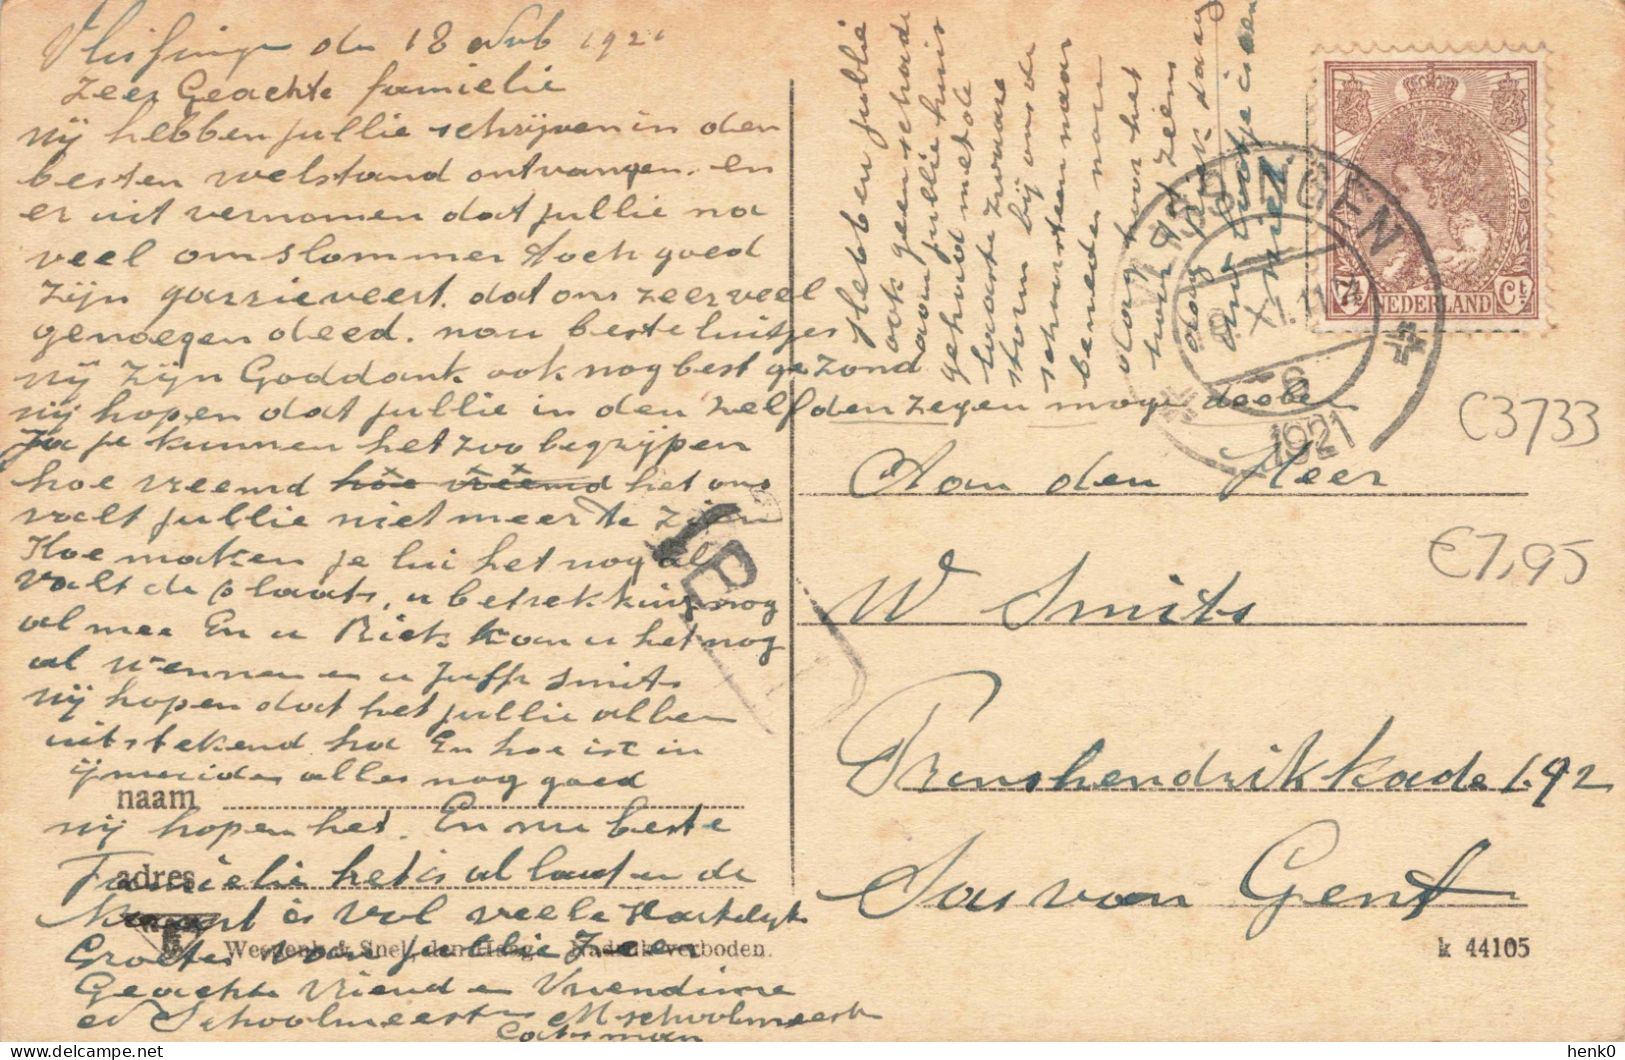 Vlissingen den 18 Nob 1921
Zeer Geachte famielie
wij hebben jullie schrijven in den
besten welstand ontvangen. en
er uit vernomen dat jullie na
veel omslommer toch goed
zijn gearrieveert. dat ons zeer veel
genoegen deed. nou beste luitjes
wij zijn Goddank ook nog best gezond
wij hopen dat jullie in den zelfden zegen moge deelen
Ja je kunnen het zoo begrijpen
hoe vreemd hoe vreemd het ons
valt jullie niet meer te zien
Hoe maken je lui het nog al
valt de plaats, u betrekking nog
al mee En u Riek kan u het nog
al wennen en u juffr Smits
wij hopen dat het jullie allen
uitstekend ha En hoe ist in
ijmuiden alles nog goed
naam
wij hopen het. En nu beste
adres
Famielie het is al laat en de
kaart is vol veele Hartelijke
Groeten van jullie Zeer
Geachte Vriend en Vriendinne
en Schoolmeester M schoolmeester
Catsman
Weenenk & Snel, den Haag. Nadruk verboden.
Hebben jullie
ook geen schade
aan jullie huis
gehad met de
laaste zwaare
storm bij ons de
schoorsteen naar
beneden nou
dag hoor het
dag Riek dag
VLISSINGEN
18 XI. 11
1921
7½ NEDERLAND Ct
C3733
€7,95
Aan den Heer
W Smits
Prinshendrikkade 192
Sas van Gent
k 44105
henk0